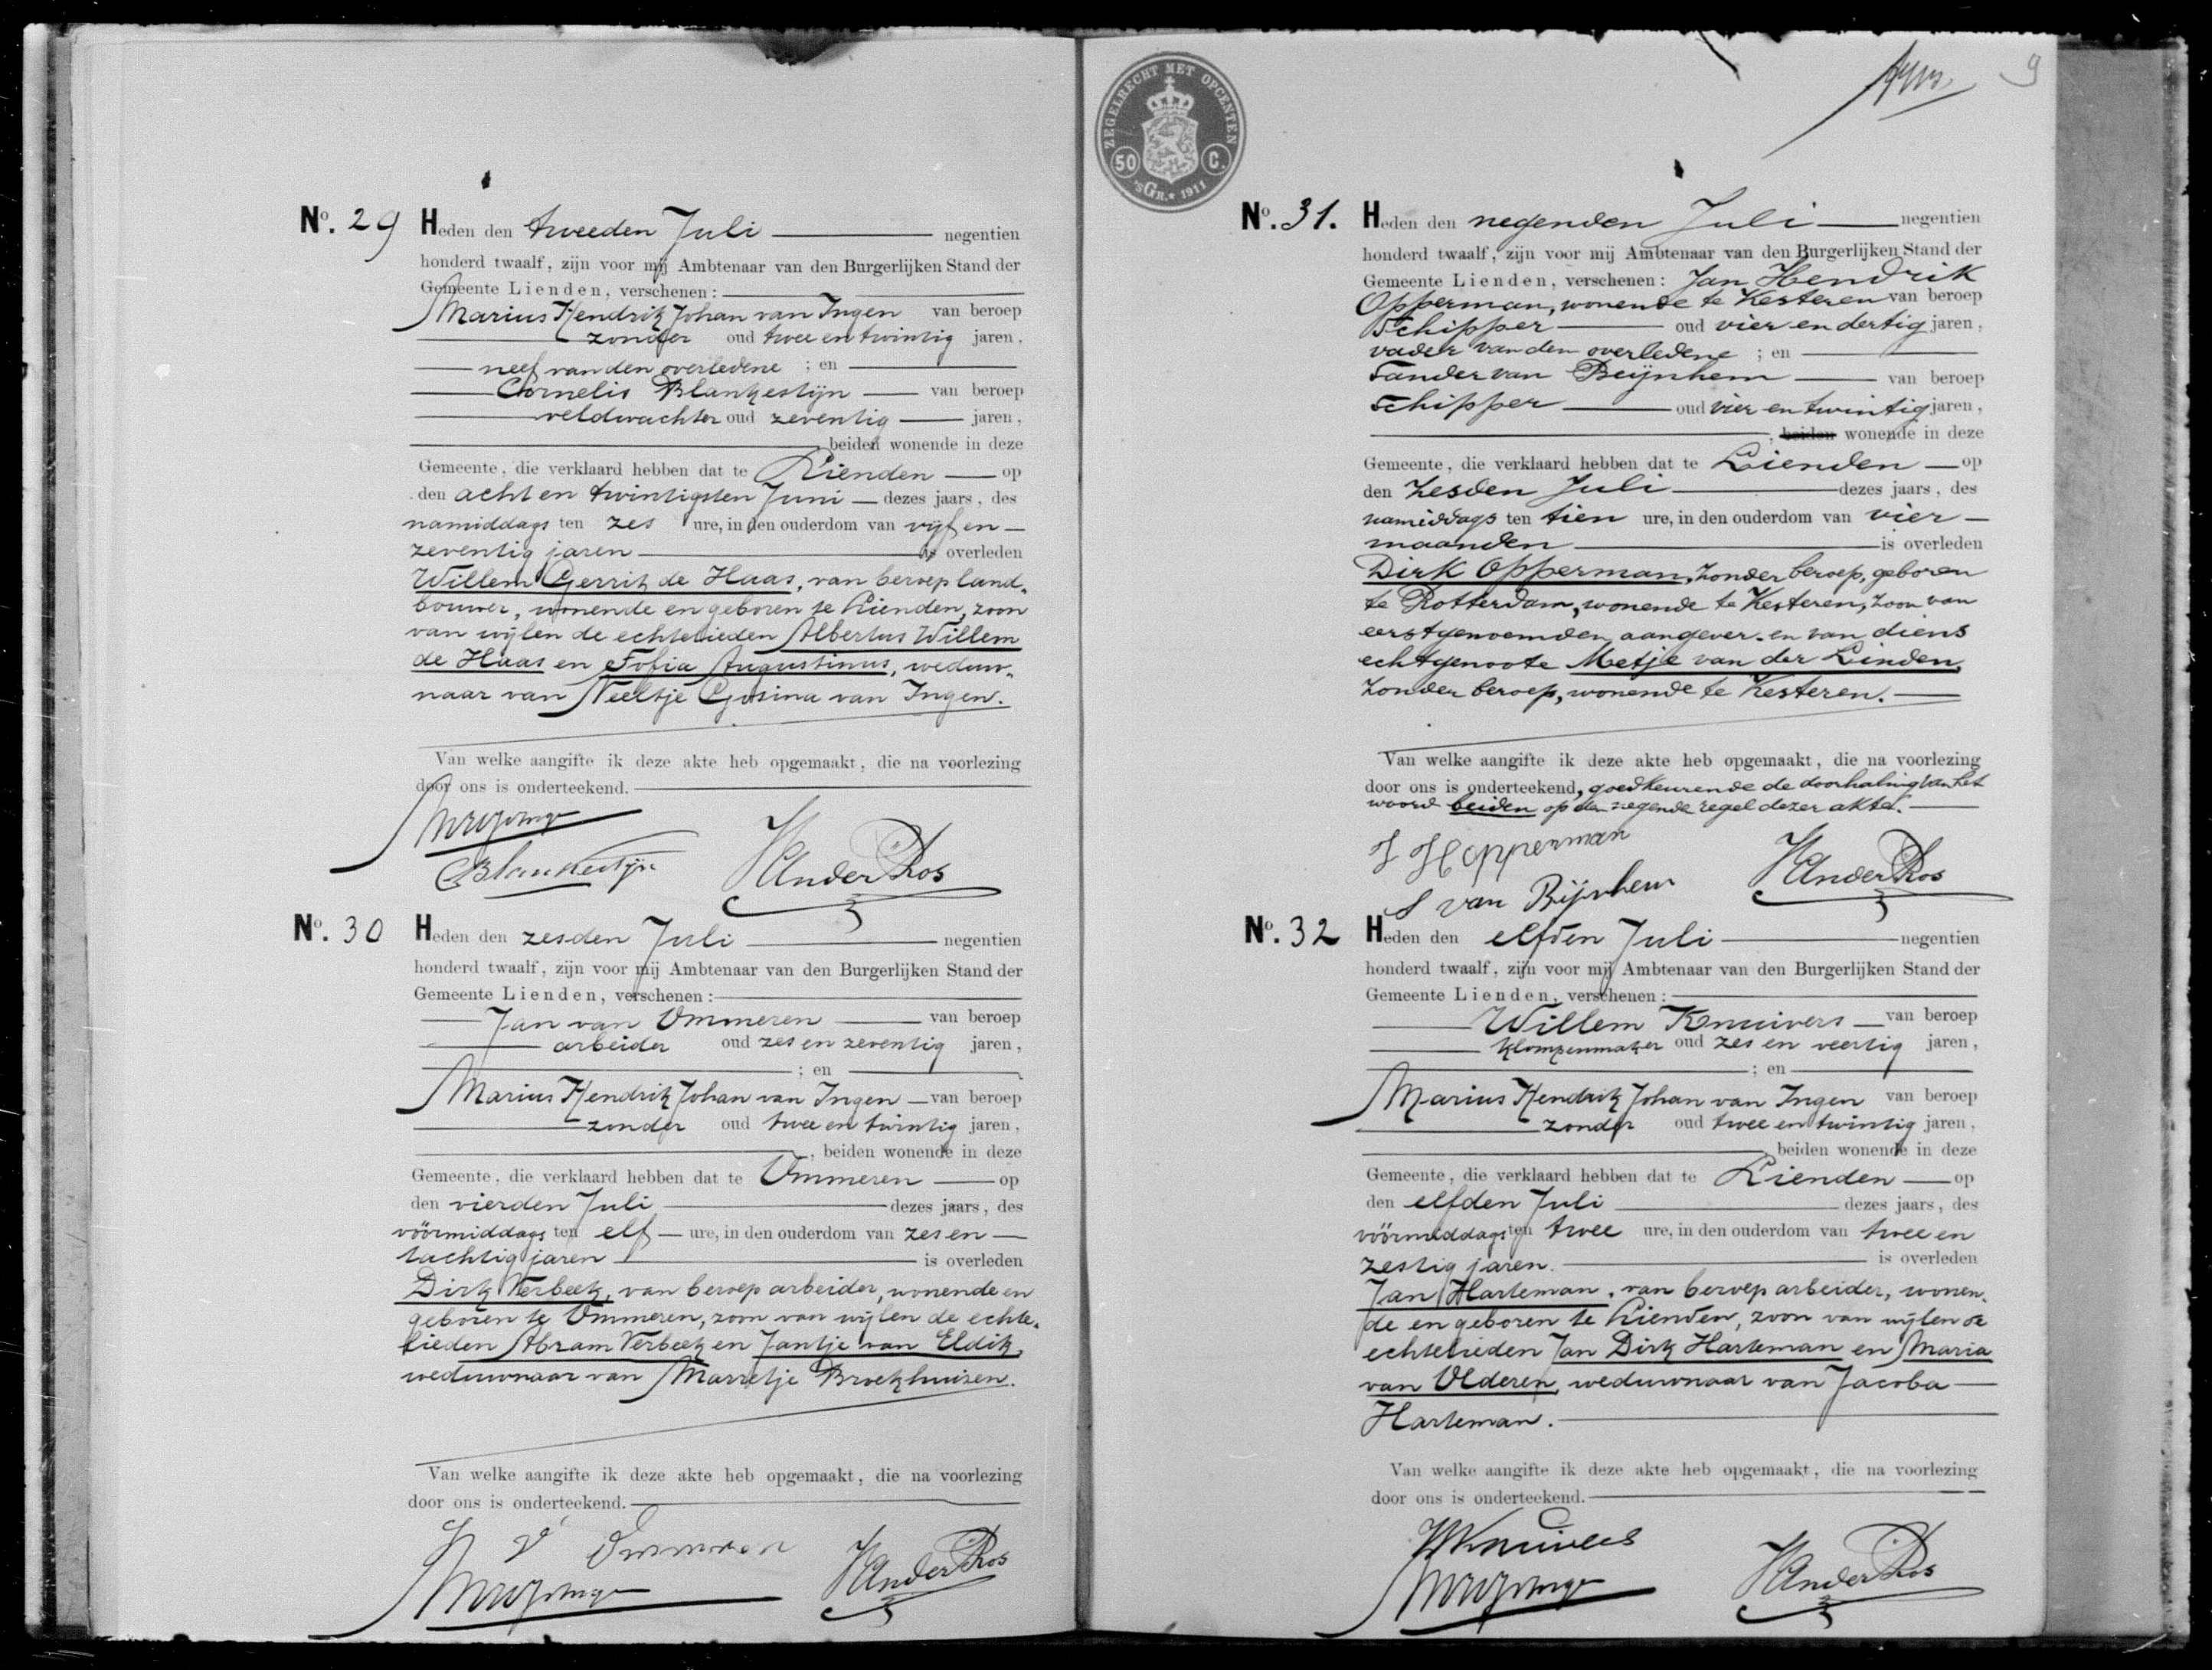 No. 29 Heden den tweeden Juli negentien
honderd twaalf, zijn voor mij Ambtenaar van den Burgerlijken Stand der
Gemeente Lienden, verschenen:
Marius Hendrik Johan van Ingen van beroep
zonder oud twee en twintig jaren,
neef van den overledene ; en
Cornelis Blankestijn van beroep
veldwachter oud zeventig jaren,
beiden wonende in deze
Gemeente, die verklaard hebben dat te Lienden op
den acht en twintigsten Juni dezes jaars, des
namiddags ten zes ure, in den ouderdom van vijf en
zeventig jaren is overleden
Willem Gerrit de Haas, van beroep land-
bouwer, wonende en geboren te Lienden, zoon
van wijlen de echtelieden Albertus Willem
de Haas en Sofia Augustinus, weduw-
naar van Neeltje Gosina van Ingen.
Van welke aangifte ik deze akte heb opgemaakt, die na voorlezing
door ons is onderteekend.
CBlankestijn HvanderRos
No. 30 Heden den zesden Juli negentien
honderd twaalf, zijn voor mij Ambtenaar van den Burgerlijken Stand der
Gemeente Lienden, verschenen:
Jan van Ommeren van beroep
arbeider oud zes en zeventig jaren,
; en
Marius Hendrik Johan van Ingen van beroep
zonder oud twee en twintig jaren,
, beiden wonende in deze
Gemeente, die verklaard hebben dat te Ommeren op
den vierden Juli dezes jaars, des
vöörmiddags ten elf ure, in den ouderdom van zes en
tachtig jaren is overleden
Dirk Verbeek, van beroep arbeider, wonende en
geboren te Ommeren, zoon van wijlen de echte-
lieden Abram Verbeek en Jantje van Eldik,
weduwnaar van Marretje Broekhuisen.
Van welke aangifte ik deze akte heb opgemaakt, die na voorlezing
door ons is onderteekend.
J v Ommeren HvanderRos
9
ZEGELRECHT MET OPCENTEN
50 C.
'sGR. 1911
No. 31. Heden den negenden Juli negentien
honderd twaalf, zijn voor mij Ambtenaar van den Burgerlijken Stand der
Gemeente Lienden, verschenen: Jan Hendrik
Opperman, wonende te Kesteren van beroep
Schipper oud vier en dertig jaren,
vader van den overledene ; en
Sander van Beijnhem van beroep
Schipper oud vier en twintig jaren,
, beiden wonende in deze
Gemeente, die verklaard hebben dat te Lienden op
den Zesden Juli dezes jaars, des
namiddags ten tien ure, in den ouderdom van vier
maanden is overleden
Dirk Opperman, Zonder beroep, geboren
te Rotterdam, wonende te Kesteren, zoon van
eerstgenoemden aangever en van diens
echtgenoote Metje van der Linden,
Zonder beroep, wonende te Kesteren.
Van welke aangifte ik deze akte heb opgemaakt, die na voorlezing
door ons is onderteekend, goedkeurende de doorhaling van het
woord beiden op den negende regel dezer akte.
J H Opperman
S van Bijnhem HvanderRos
No. 32 Heden den elfden Juli negentien
honderd twaalf, zijn voor mij Ambtenaar van den Burgerlijken Stand der
Gemeente Lienden, verschenen:
Willem Knuivers van beroep
klompenmaker oud zes en veertig jaren,
; en
Marius Hendrik Johan van Ingen van beroep
zonder oud twee en twintig jaren,
beiden wonende in deze
Gemeente, die verklaard hebben dat te Lienden op
den elfden Juli dezes jaars, des
vöörmiddags ten twee ure, in den ouderdom van twee en
zestig jaren. is overleden
Jan Harteman, van beroep arbeider, wonen-
de en geboren te Lienden, zoon van wijlen de
echtelieden Jan Dirk Harteman en Maria
van Olderen, weduwnaar van Jacoba
Harteman.
Van welke aangifte ik deze akte heb opgemaakt, die na voorlezing
door ons is onderteekend.
WKnuivers
HvanderRos